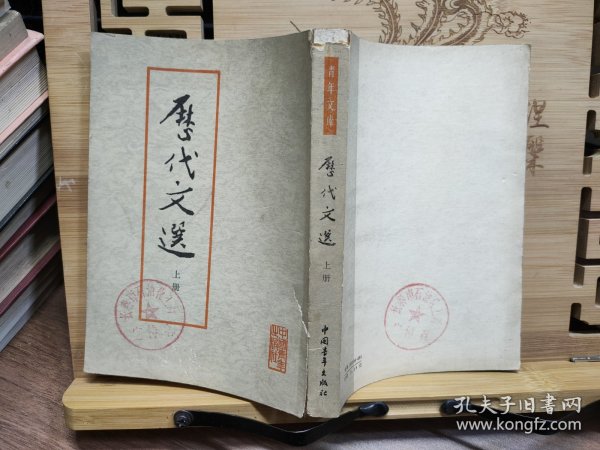 歷代文選
上册
青年文库
歷代文选
上册
中国青年出版社
涅槃
孔夫子旧书网
www.kongfz.com